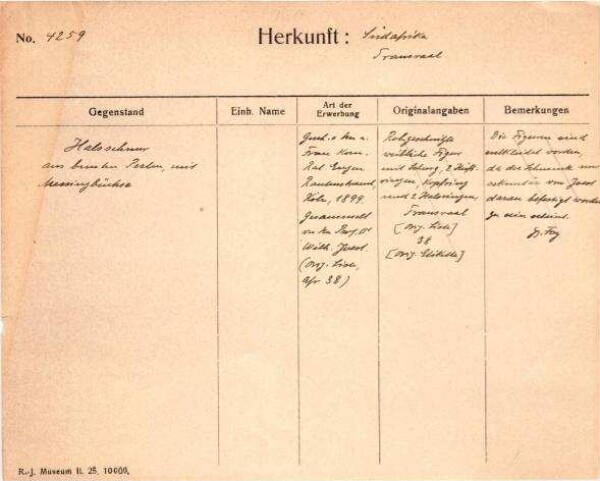 No. 4259
Herkunft: Südafrika
Transvaal
Gegenstand
Einh. Name
Art der
Erwerbung
Originalangaben
Bemerkungen
Halsschnur
aus bunten Perlen, mit
Messingbüchse
Gesch. v. Hn u.
Frau Kom.
Rat Eugen
Rautenstrauch,
Köln, 1899.
Gesammelt
von Hn Prof. Dr
Wilh. Joest.
(Orig. Liste,
Afr. 38)
Rohgeschnitzte
weibliche Figur
mit Schurz, 2
ringen, Kopfring
und 2 Halsringen,
Transvaal
[Orig. Liste]
38
[Orig. Etikette]
Die Figuren sind
entkleidet worden,
da der Schmuck nur
sekundär von Joest
daran befestigt worden
zu sein scheint.
R.-J. Museum II. 25. 10000.